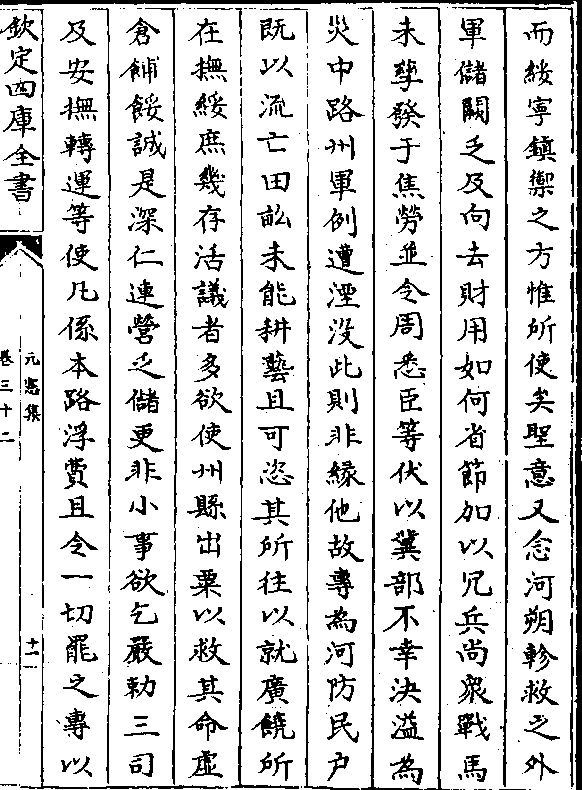 而綏寧鎮禦之方惟所使矣聖意又念河朔軫救之外
軍儲闕乏及向去財用如何省節加以冗兵尚衆戰馬
未孳發于焦勞並令周悉臣等伏以冀部不幸決溢為
災中路州軍例遭湮没此則非緣他故專為河防民户
既以流亡田畝未能耕藝且可恣其所往以就廣饒所
在撫綏庶幾存活議者多欲使州縣出粟以救其命虛
倉餔餒誠是深仁連營乏儲更非小事欲乞嚴勅三司
及安撫轉運等使凡係本路浮費且令一切罷之專以
欽定四庫全書
元憲集
卷三十二
十一